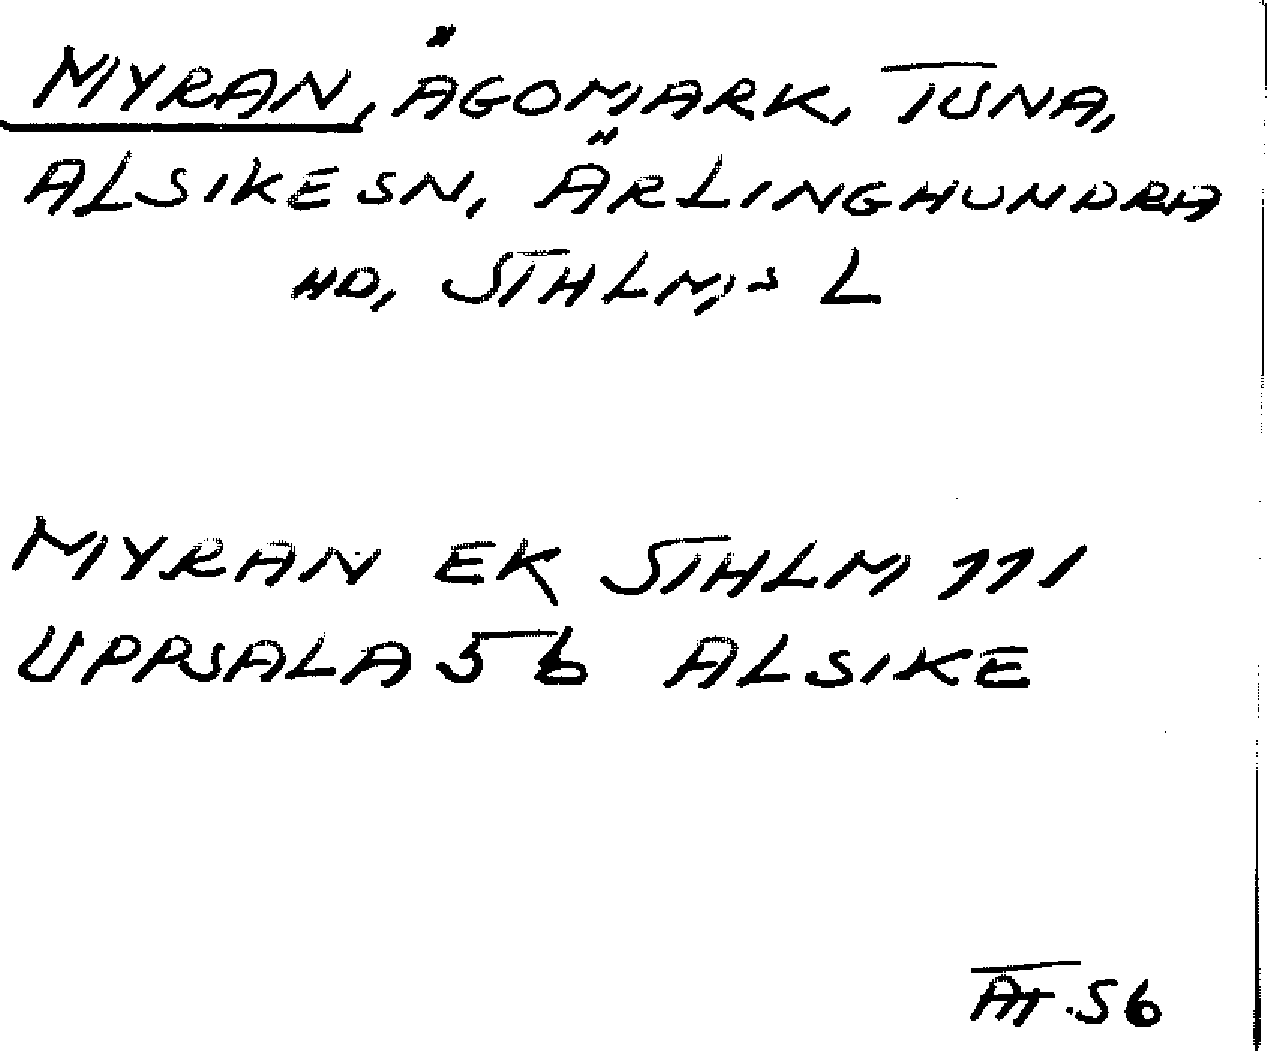 MYRAN, ÄGOMARK, TUNA,
ALSIKE SN, ÄRLINGHUNDRA
HD, STHLM:S L
MYRAN EK STHLM 111
UPPSALA 56 ALSIKE
AT.56